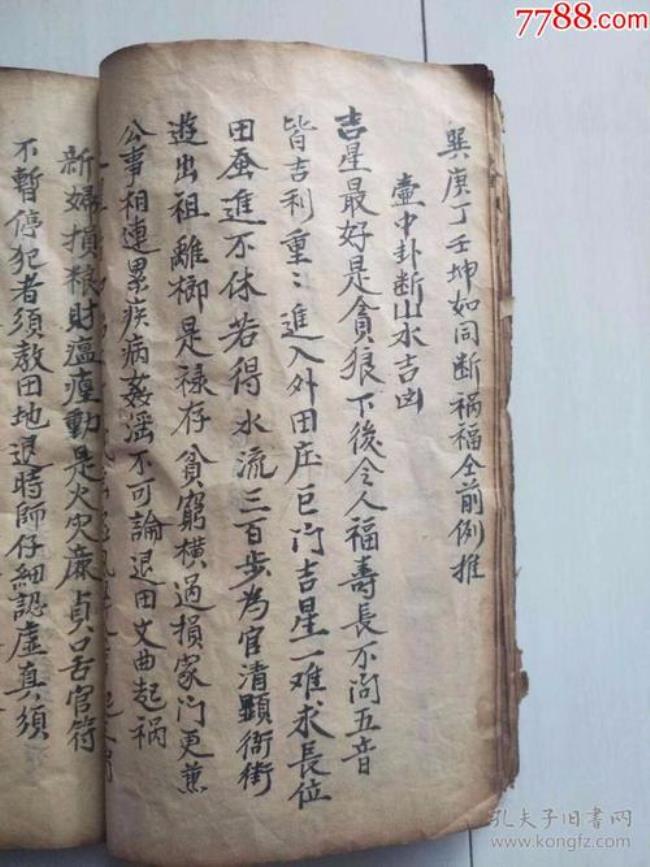 7788.com
巽庚丁壬坤如同断祸福仝前例推
壷中卦断山水吉凶
吉星最好是貪狼下後令人福壽長不问五音
皆吉利重〻進入外田庄巨门吉星一难求長位
田蚕進不休若得水流三百歩為官清顯衙街
遊出祖離鄉是禄存貧窮横過損家门更蕉
公事相連累疾病姦滛不可論退田文曲起祸
新婦損粮財瘟㾏動是火灾廉貞口舌官符
不暫停犯者須教田地退時師仔細認虚真須
孔夫子旧书网
www.kongfz.com